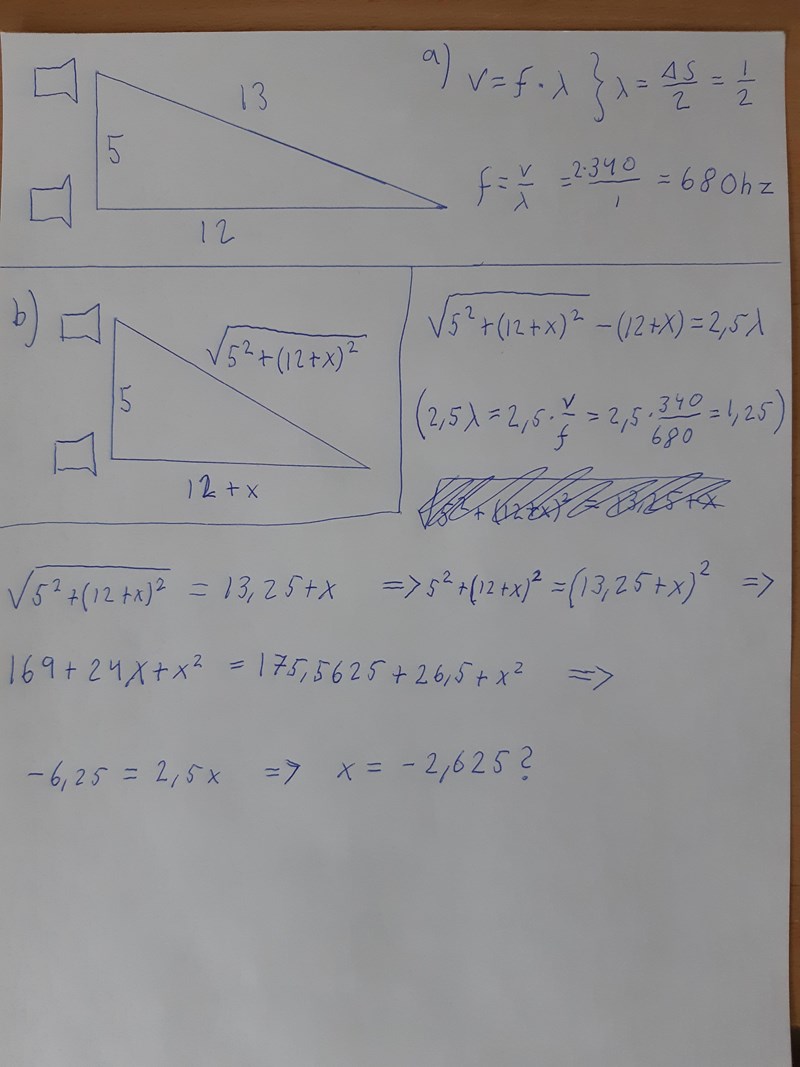 13
5
12
a) v = f · λ } λ = ΔS/2 = 1/2
f = v/λ = 2·340/1 = 680hz
b)
√(5² + (12+x)²)
5
12 + x
√(5² + (12+x)²) - (12+x) = 2,5λ
(2,5λ = 2,5 · v/f = 2,5 · 340/680 = 1,25)
√(5² + (12+x)²) = 13,25 + x => 5² + (12+x)² = (13,25+x)² =>
169 + 24x + x² = 175,5625 + 26,5 + x² =>
-6,25 = 2,5x => x = -2,625?